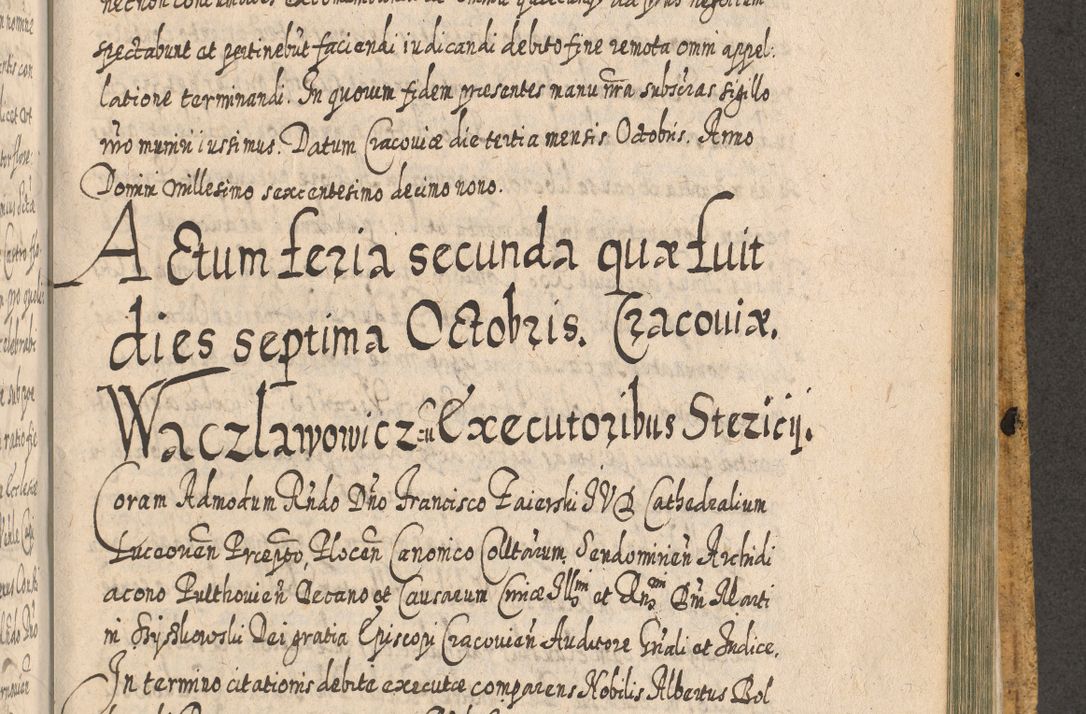 spectabunt et pertinebūt faciendi iudicandi debito fine remota omni appel:
latione terminandi. In quorum fidem præsentes manu n̄ra subscr̄as sigillo
n̄ro muniri iussimus. Datum Cracoviæ die tertia mensis Octobris. Anno
Domini millesimo sexcentesimo decimo nono.
Actum feria secunda quæ fuit
dies septima Octobris. Cracoviæ.
Waczlawowicz cū Executoribus Stericij.
Coram Admodum Rn̄do Dn̄o Francisco Zaierski IVD Cathedralium
Luceorien̄ Præpto, Plocen̄ Canonico Colltārum Sendomirien̄ Archidi
acono Pulthovien̄ Decano et Causarum Curiæ Illmi et Rn̄mi Dn̄i Marti
ni Szyszkowski Dei gratia Episcopi Cracovien̄ Auditore Gn̄ali et Iudice,
In termino citationis debite executæ comparens Nobilis Albertus Bol